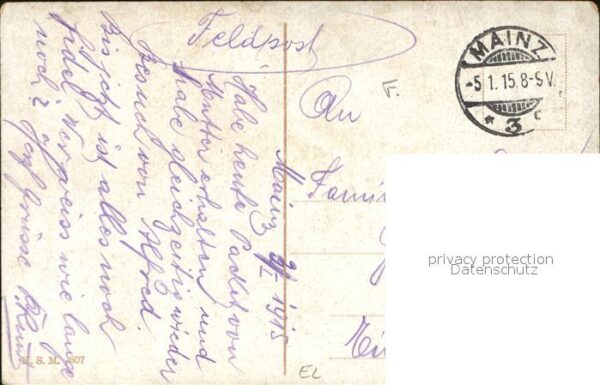 Feldpost
MAINZ
-5.1.15.8-9V.
* 3 c
F.
An
Fami
Mainz 3/I 1915
Habe heute Packet von
Mutter erhalten und
habe gleichzeitig wieder
Besuch von Alfred.
Bis jetzt ist alles noch
fidel. Wer weiss wie lange
noch?
Grüsse
S. M. 607
EL
privacy protection
Datenschutz